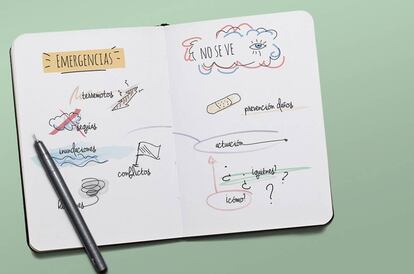 EMERGENCIAS
terremotos
sequías
inundaciones
conflictos
NO SE VE
prevención daños
actuación
¿quiénes?
¿cómo?
¿ ?
?